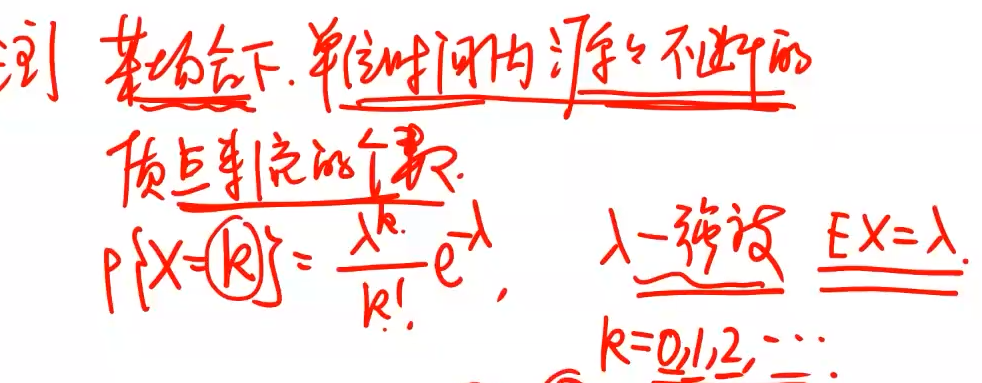 注] 某场合下.单位时间内源々不断的
质点来流的个数.
P{X=k}=λ^k/k! e^-λ, λ-强度 EX=λ.
k=0,1,2,…